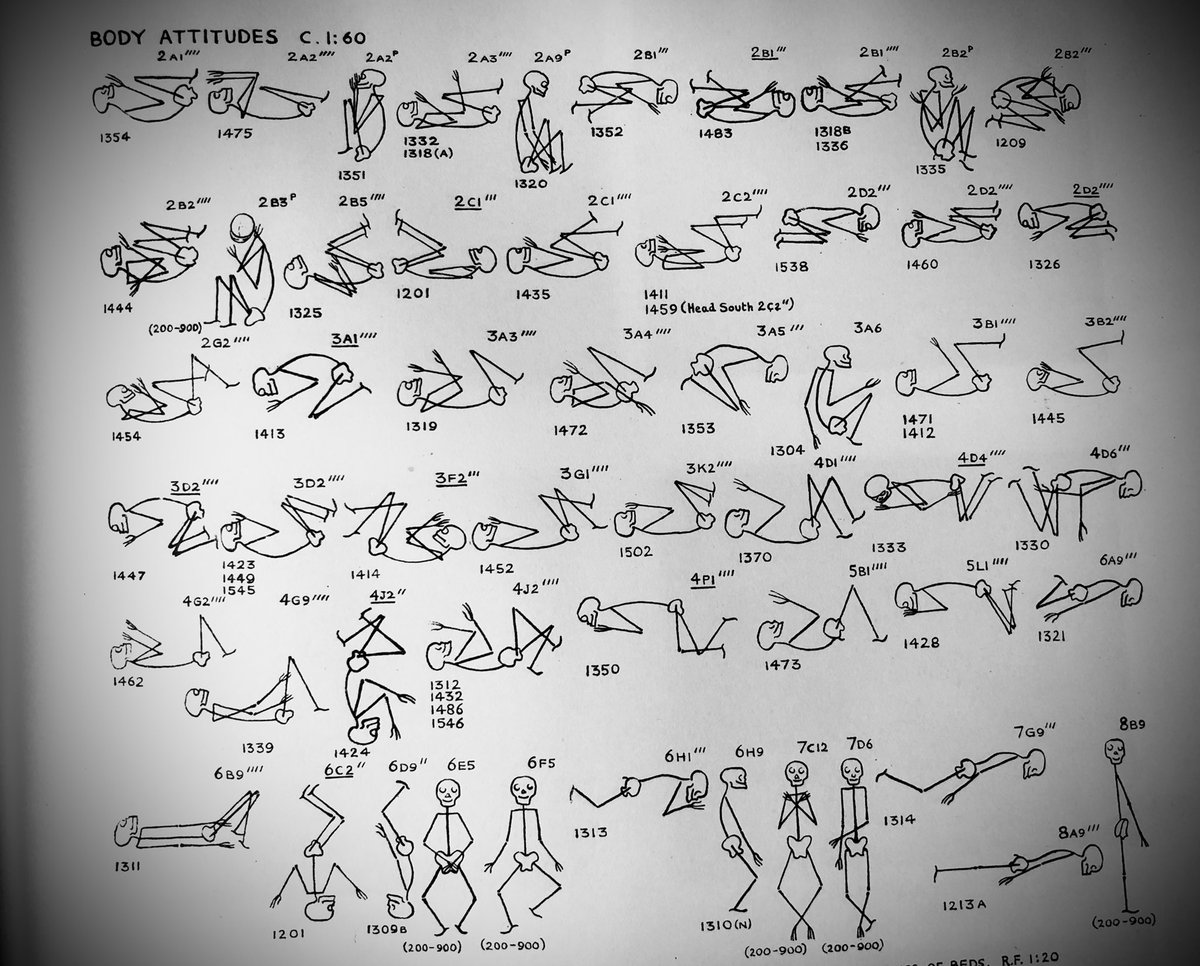 BODY ATTITUDES C. 1:60
2A1'''' 2A2'''' 2A2P 2A3'''' 2A9P 2B1''' 2B1''' 2B1'''' 2B2P 2B2'''
1354 1475 1351 1332 1320 1352 1483 1318B 1335 1209
1318(A) 1336
2B2'''' 2B3P 2B5'''' 2C1''' 2C1'''' 2C2'''' 2D2''' 2D2'''' 2D2''''
1444 (200-900) 1325 1201 1435 1411 1538 1460 1326
1459 (Head South 2C2'')
2G2'''' 3A1'''' 3A3'''' 3A4'''' 3A5''' 3A6 3B1'''' 3B2''''
1454 1413 1319 1472 1353 1304 1471 1445
1412
3D2''' 3D2'''' 3F2''' 3G1'''' 3K2'''' 4D1'''' 4D4'''' 4D6'''
1447 1423 1414 1452 1502 1370 1333 1330
1449
1545
4G2'''' 4G9'''' 4J2'' 4J2'''' 4P1'''' 5B1'''' 5L1'''' 6A9'''
1462 1339 1424 1312 1350 1473 1428 1321
1432
1486
1546
6B9'''' 6C2'' 6D9'' 6E5 6F5 6H1''' 6H9 7C12 7D6 7G9''' 8B9
1311 1201 1309B (200-900) (200-900) 1313 1310(N) (200-900) (200-900) 1314 (200-900)
8A9'''
1213A
OF BEDS. R.F. 1:20